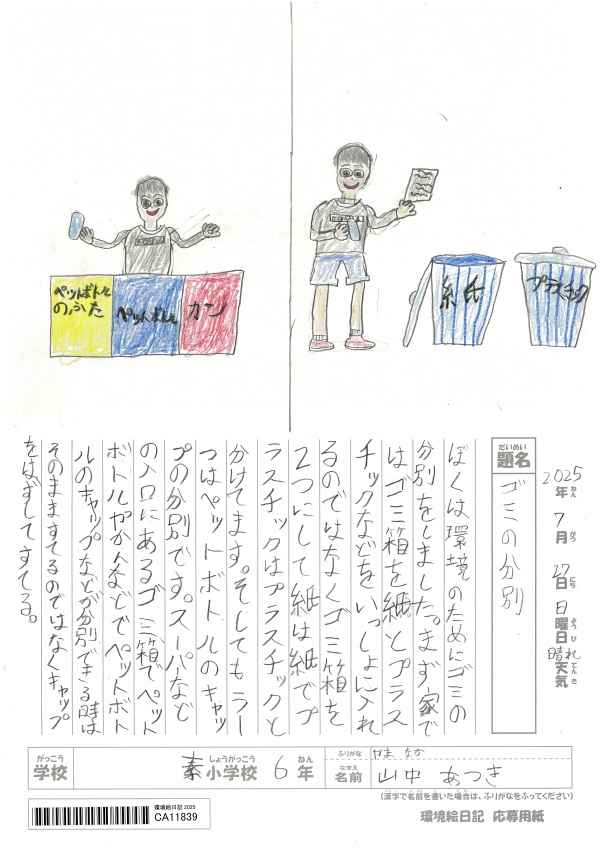 ペットボトル
のふた
ペットボトル
カン
紙
プラスチック
2025年 7月 27日 日曜日 晴れ天気
ねん がつ にち ようび てんき
だいめい
題名
ゴミの分別
ぼくは環境のためにゴミの
分別をしました。まず家で
はゴミ箱を紙とプラス
チックなどをいっしょに入れ
るのではなくゴミ箱を
2つにして紙は紙でプ
ラスチックはプラスチックと
分けてます。そしてもう一
つはペットボトルのキャッ
プの分別です。スーパなど
の入口にあるゴミ箱でペット
ボトルやかんなどでペットボト
ルのキャップなどが分別できる時は
そのまますてるのではなくキャップ
をはずしてすてる。
がっこう
学校
しょうがっこう ねん
素小学校 6年
ふりがな
やま なか
なまえ
名前
山中 あつき
(漢字で名前を書いた場合は、ふりがなをふってください)
環境絵日記 2025
CA11839
環境絵日記 応募用紙